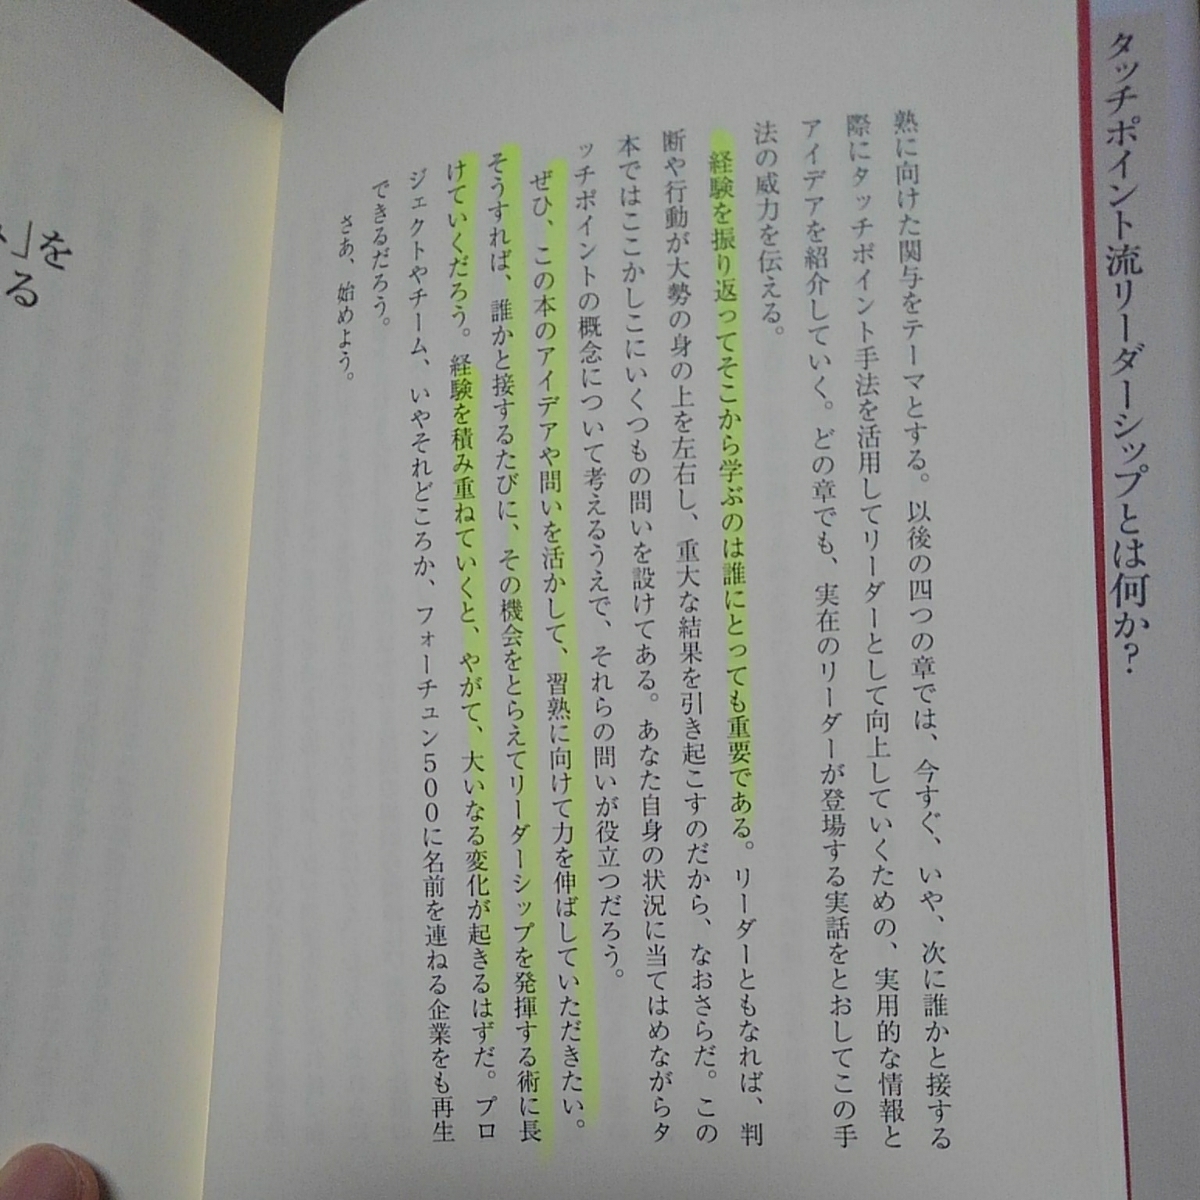 タッチポイント流リーダーシップとは何か?
熟に向けた関与をテーマとする。以後の四つの章では、今すぐ、いや、次に誰かと接する
際にタッチポイント手法を活用してリーダーとして向上していくための、実用的な情報と
アイデアを紹介していく。どの章でも、実在のリーダーが登場する実話をとおしてこの手
法の威力を伝える。
経験を振り返ってそこから学ぶのは誰にとっても重要である。リーダーともなれば、判
断や行動が大勢の身の上を左右し、重大な結果を引き起こすのだから、なおさらだ。この
本ではここかしこにいくつもの問いを設けてある。あなた自身の状況に当てはめながらタ
ッチポイントの概念について考えるうえで、それらの問いが役立つだろう。
ぜひ、この本のアイデアや問いを活かして、習熟に向けて力を伸ばしていただきたい。
そうすれば、誰かと接するたびに、その機会をとらえてリーダーシップを発揮する術に長
けていくだろう。経験を積み重ねていくと、やがて、大いなる変化が起きるはずだ。プロ
ジェクトやチーム、いやそれどころか、フォーチュン500に名前を連ねる企業をも再生
できるだろう。
さあ、始めよう。
」を
る